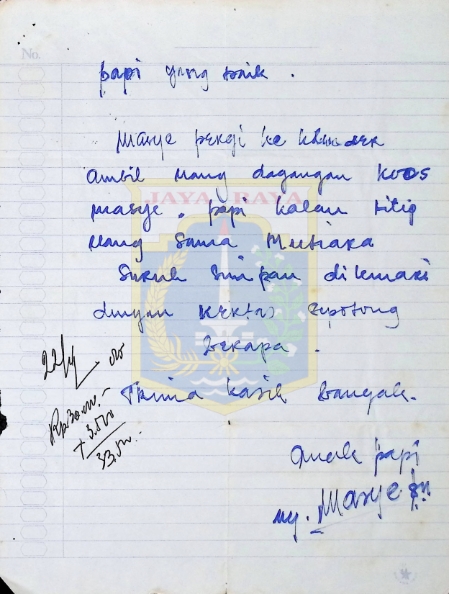 No.
papi yang baik.
Marye pergi ke
ambil uang dagangan koos
JAYA RAYA
marye. papi kalau titip
uang sama Mutiara
suruh simpan dilemari
dengan kertas sepotong
berapa.
Trima kasih banyak.
22/4
Rp 30.000.-
+ 3.500
33.500.-
anak papi
ny. Marye